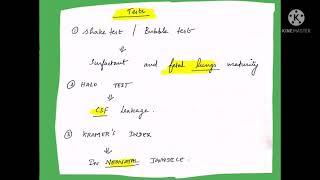 Tests
① Shake test / Bubble test
↓
Surfactant and fetal lungs maturity
② HALO TEST
⇓
CSF Leakage.
③ KRAMER'S INDEX
⇓
In NEONATAL JAUNDICE.
MADE WITH
KINEMASTER